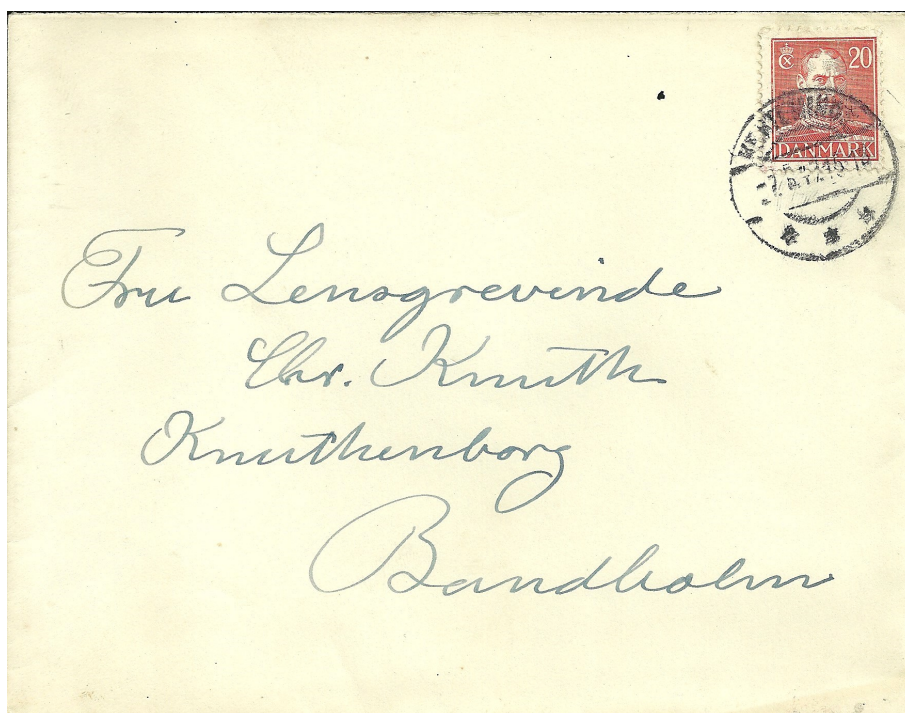 20
DANMARK
Fru Lensgrevinde
Chr. Knuth
Knuthenborg
Bandholm